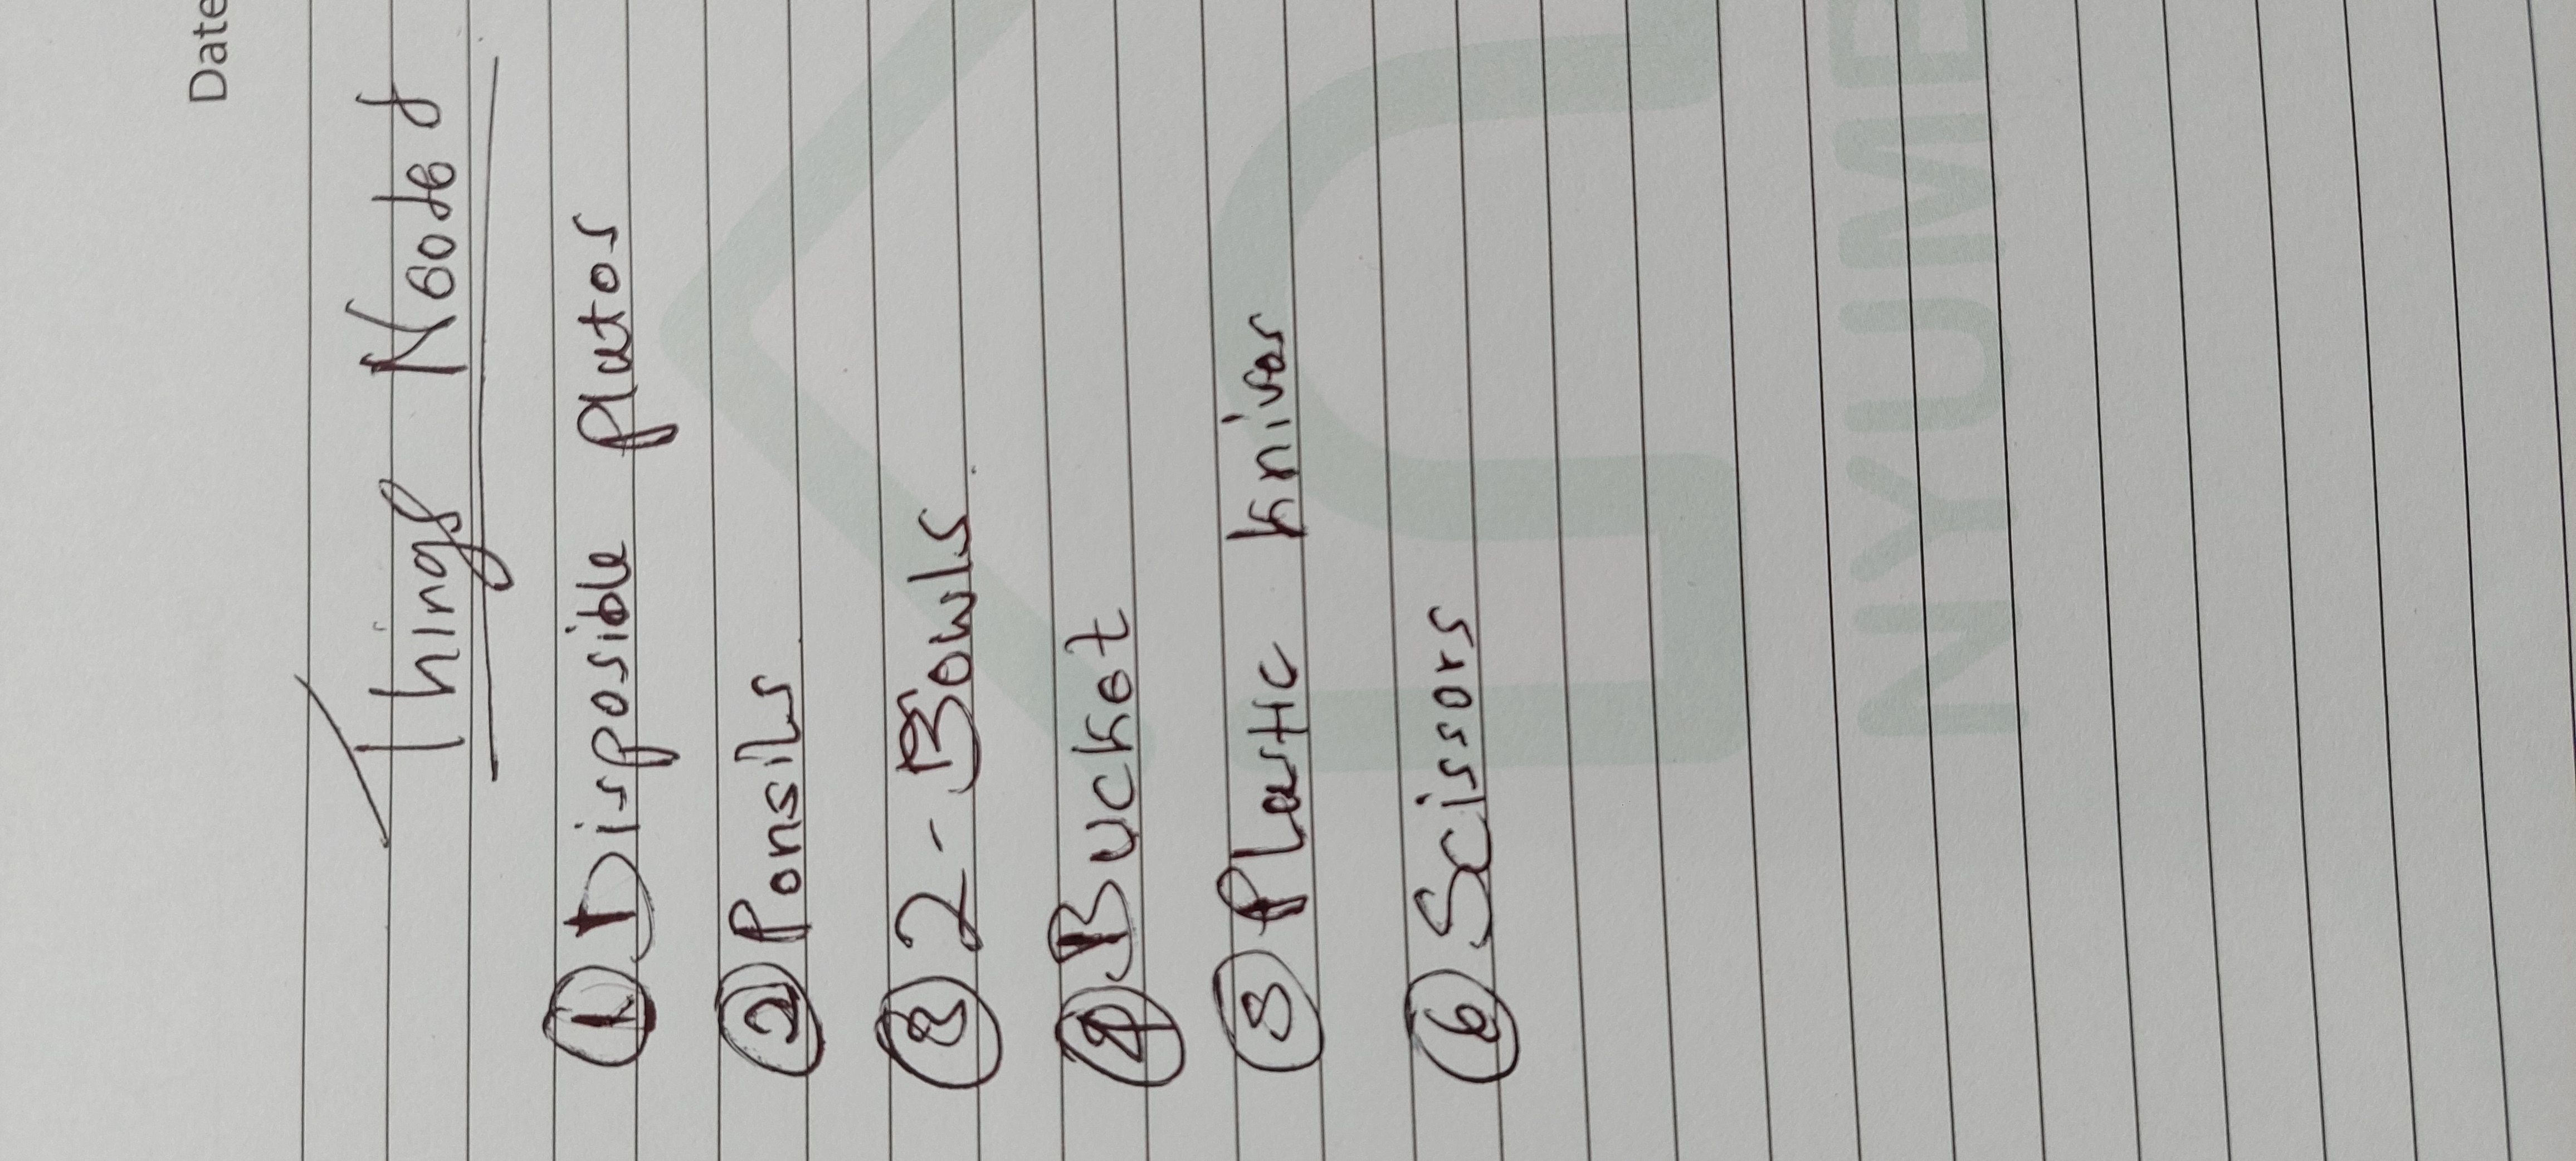 Date
Things Needed
1 Disposible plates
2 Pensils
3 2 - Bowls
4 Bucket
5 Plastic knives
6 Scissors
NYUMB